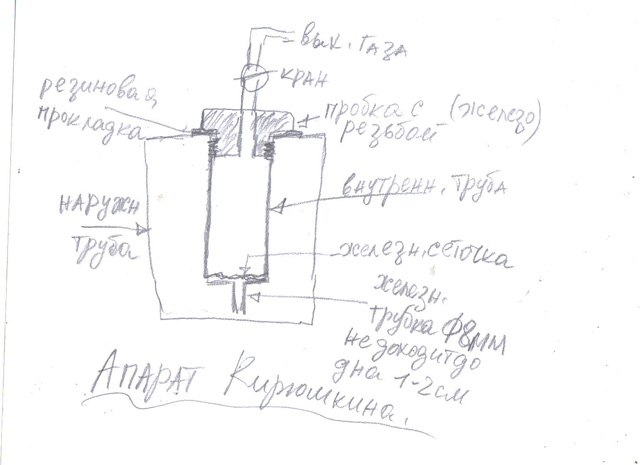 вых. газа
кран
резиновая
прокладка
пробка с (железо)
резьбой
внутренн. труба
наружн
труба
железн. сеточка
железн.
трубка Ф8мм
не доходит до
дна 1-2см
Апарат Кирюшкина.